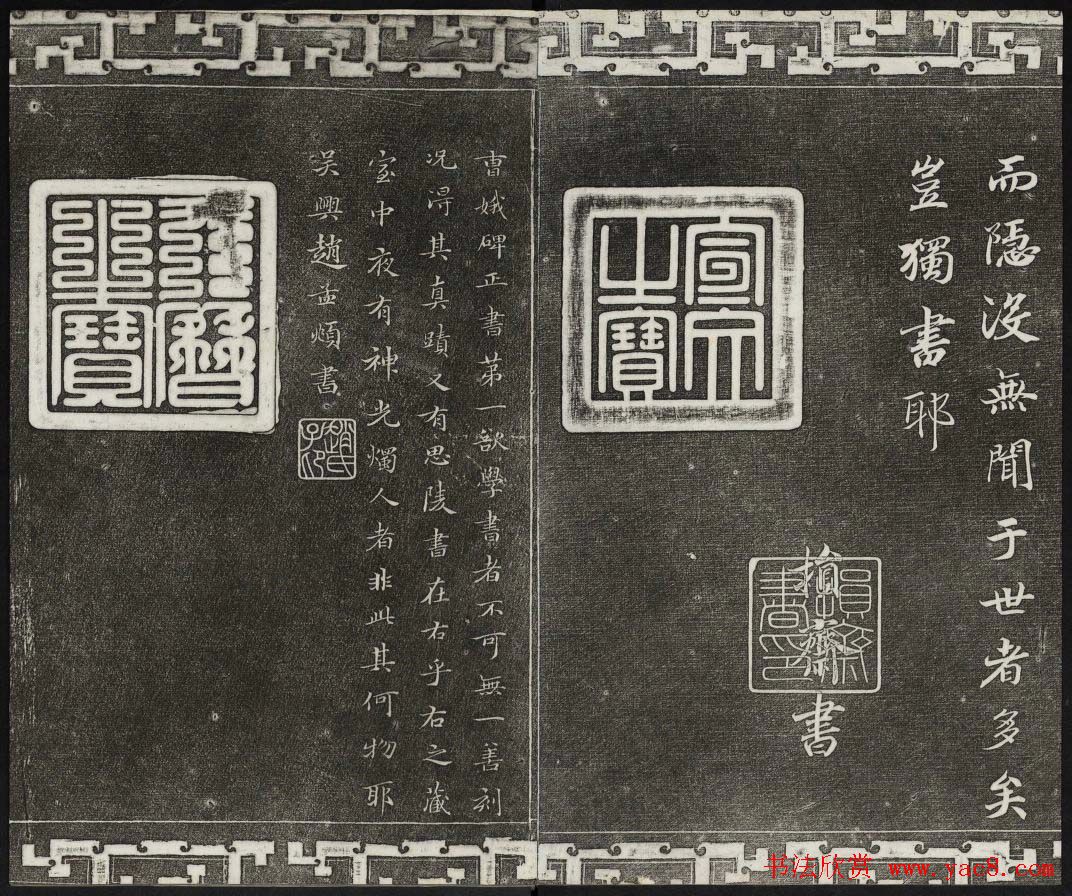 而隱沒無聞于世者多矣
豈獨書耶
損齋書
宣文之寶
曹娥碑正書第一欲學書者不可無一善刻
況得其真蹟又有思陵書在右乎右之藏
室中夜有神光燭人者非此其何物耶
吳興趙孟頫書
趙氏子昂
天曆之寶
书法欣赏 www.yac8.com